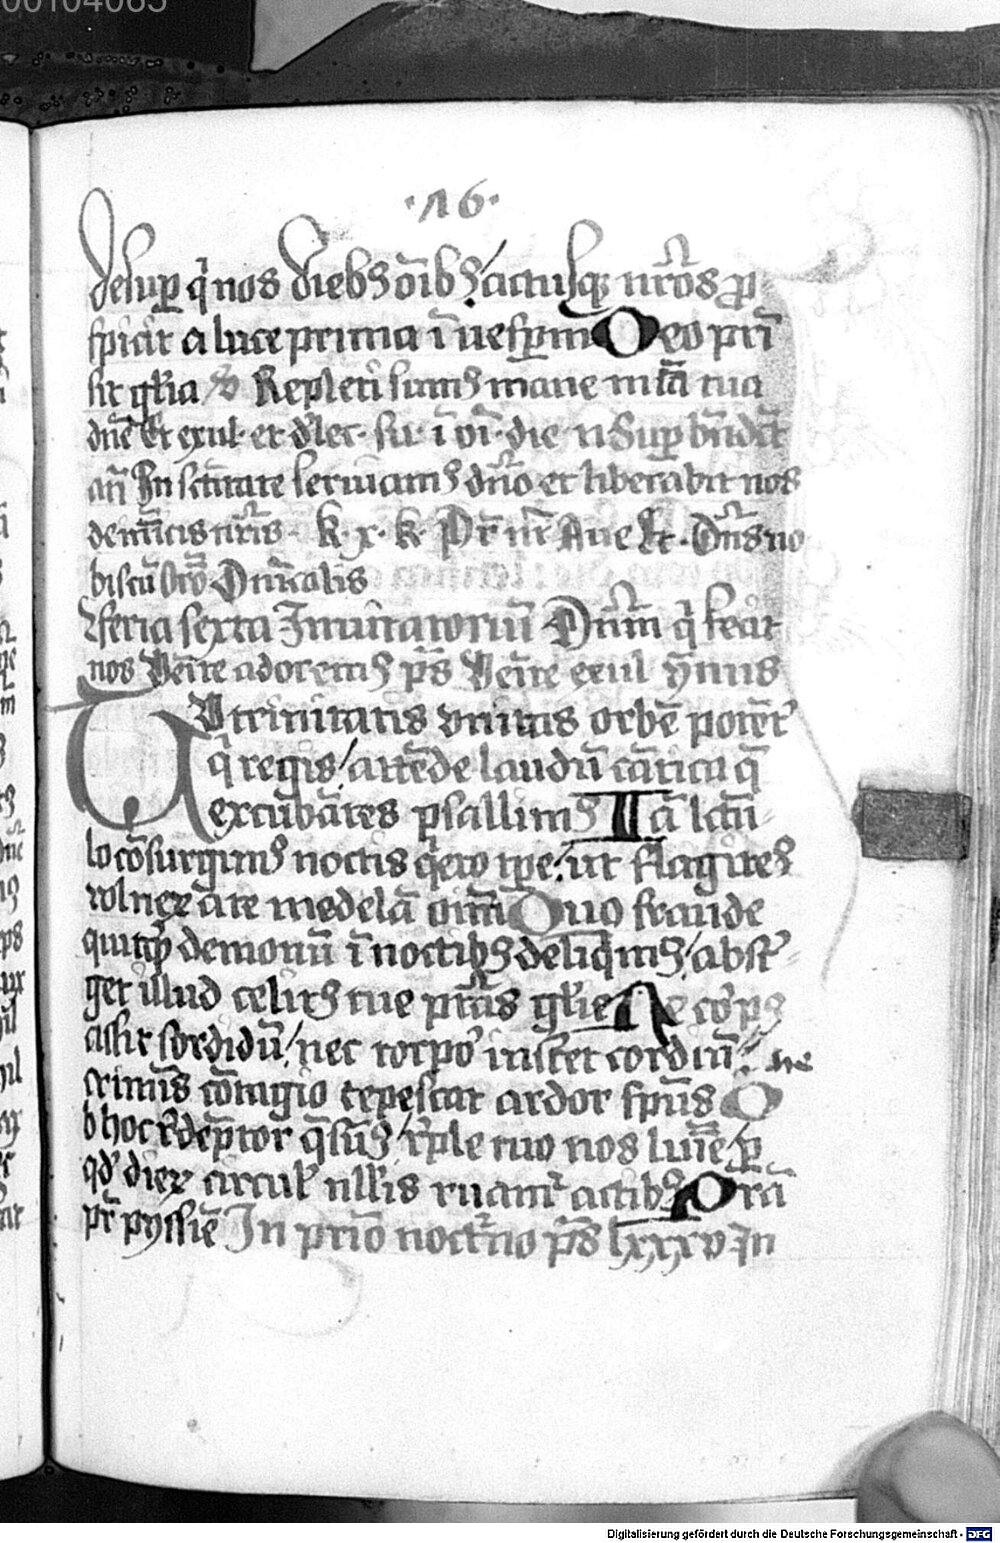 00104065
·16·
desup q̄ nos diebꝫ oībꝫ / actusqꝫ nr̄os ꝓ
spicit a luce prima ī uesp̄m Deo pr̄i
sit gl̄ia Repleti sumꝫ mane mīa tua
dn̄e Et exul· et d̄lec· su· ī oī· die· n Sup bn̄dict
an̄ In sc̄titate seruiamꝫ dn̄o et liberabit nos
de inīcis nr̄is· k· x· k· Pr̄ nr̄ Aue Et · Dn̄s no
biscū Or̄o Dn̄icalis
feria sexta Inuitatoriū Dn̄m q̄ fecit
nos Venīte adoremꝫ ps̄ Venīte exul ȳmnus
Tu trinitatis vnitas orbē potēt᷑
q̄ regis / attēde laudū cātica q̄
excubātes psallimꝫ Nā lc̄tu
lo cōsurgimꝫ noctis q̄eto tp̄e : ut flagitēꝫ
volneꝝ ate medelā oīm Quo fraude
quicq̄ demonū ī noctibꝫ deliq̄mꝫ / abst᷑
get illud celitꝫ tue ptā̄s gl̄ie Ne corpꝫ
assit sordidū / nec torpo᷑ instet cordiū : ne
crimīs cōtagio tepescat ardor sp̄us O
b hoc r̄deptor q̄sūꝫ / rple tuo nos lumīe / p
qd̄ dieꝝ circul᷑ nll̄is ruam᷑ actibꝫ Pr̄ā
pr̄ pyssiē In prīo noct᷑no ps̄ lxxxv In
Digitalisierung gefördert durch die Deutsche Forschungsgemeinschaft - DFG